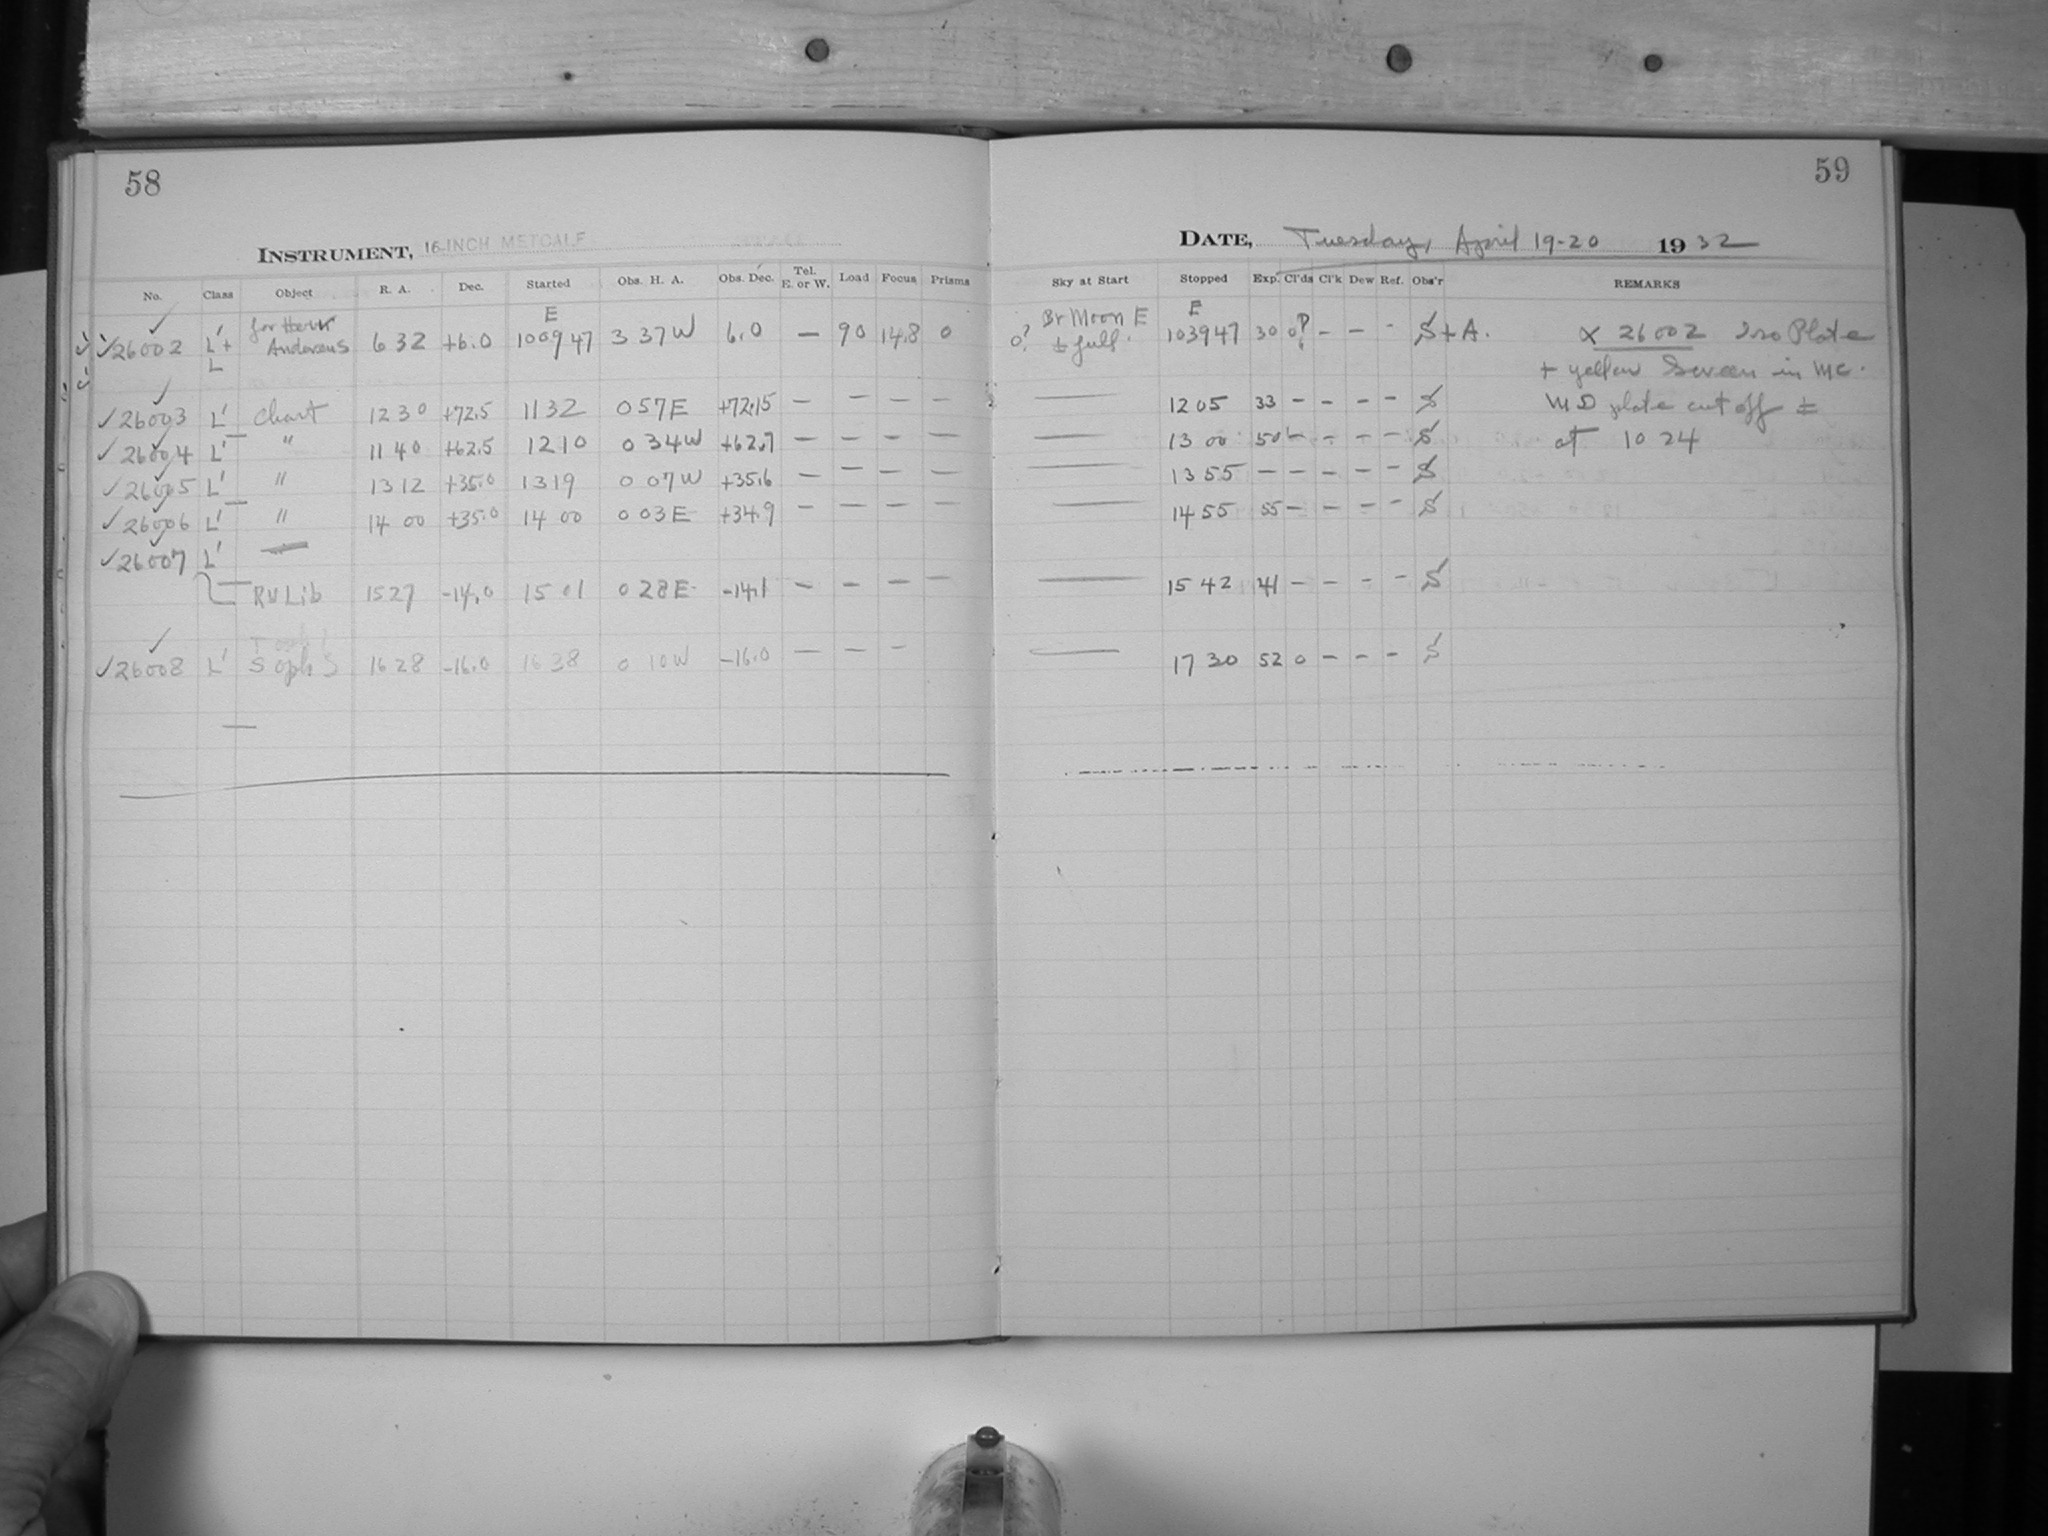 58
INSTRUMENT, 16-INCH METCALF
No. Class Object R. A. Dec. Started Obs. H. A. Obs. Dec. Tel. E. or W. Load Focus Prisms
26002 L'+ L for Andorens 6 32 +6.0 E 100947 3 37 W 6.0 — 90 14.8 0
26003 L' Chart 12 30 +72.5 11 32 0 57 E +72.15 — — — —
26004 L' " 11 40 +62.5 12 10 0 34 W +62.7 — — — —
26005 L' " 13 12 +35.0 13 19 0 07 W +35.6 — — — —
26006 L' " 14 00 +35.0 14 00 0 03 E +34.9 — — — —
26007 L' —
RU Lib 15 27 -14.0 15 01 0 28 E -14.1 — — — —
26008 L' S oph S 16 28 -16.0 16 38 0 10 W -16.0 — — —
59
DATE, Tuesday, April 19-20 1932
Sky at Start Stopped Exp. Cl'ds Cl'k Dew Ref. Obs'r REMARKS
0? Br Moon E ± full. E 103947 30 0? - - - S + A. X 26002 Iso Plate
+ yellow Screen in MC.
— 12 05 33 - - - - S MD plate cut off ±
— 13 00 50 - - - - S at 10 24
— 13 55 - - - - - S
— 14 55 55 - - - - S
— 15 42 41 - - - - S
— 17 30 52 0 - - - S